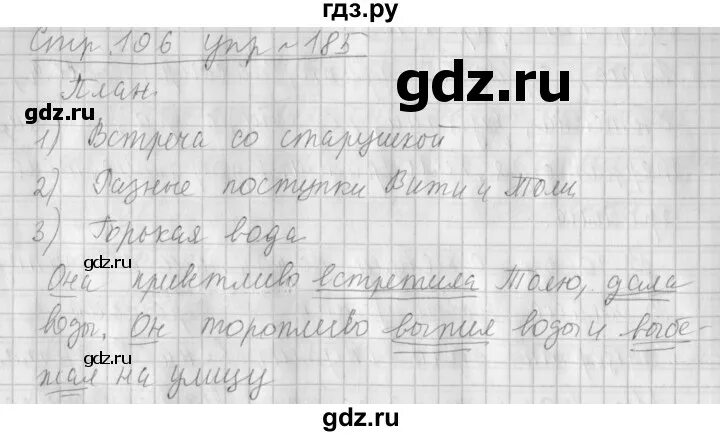 гдз.ру
Стр. 106 упр ~ 185
План.
gdz.ru
gdz.ru
1) Встреча со старушкой
2) Разные поступки Вити и Толи
gdz.ru
3) Горькая вода
gdz.ru
Она приветливо встретила Толю, дала
gdz.ru
воды. Он торопливо выпил воды и выбе-
gdz.ru
gdz.ru
жал на улицу
gdz.ru